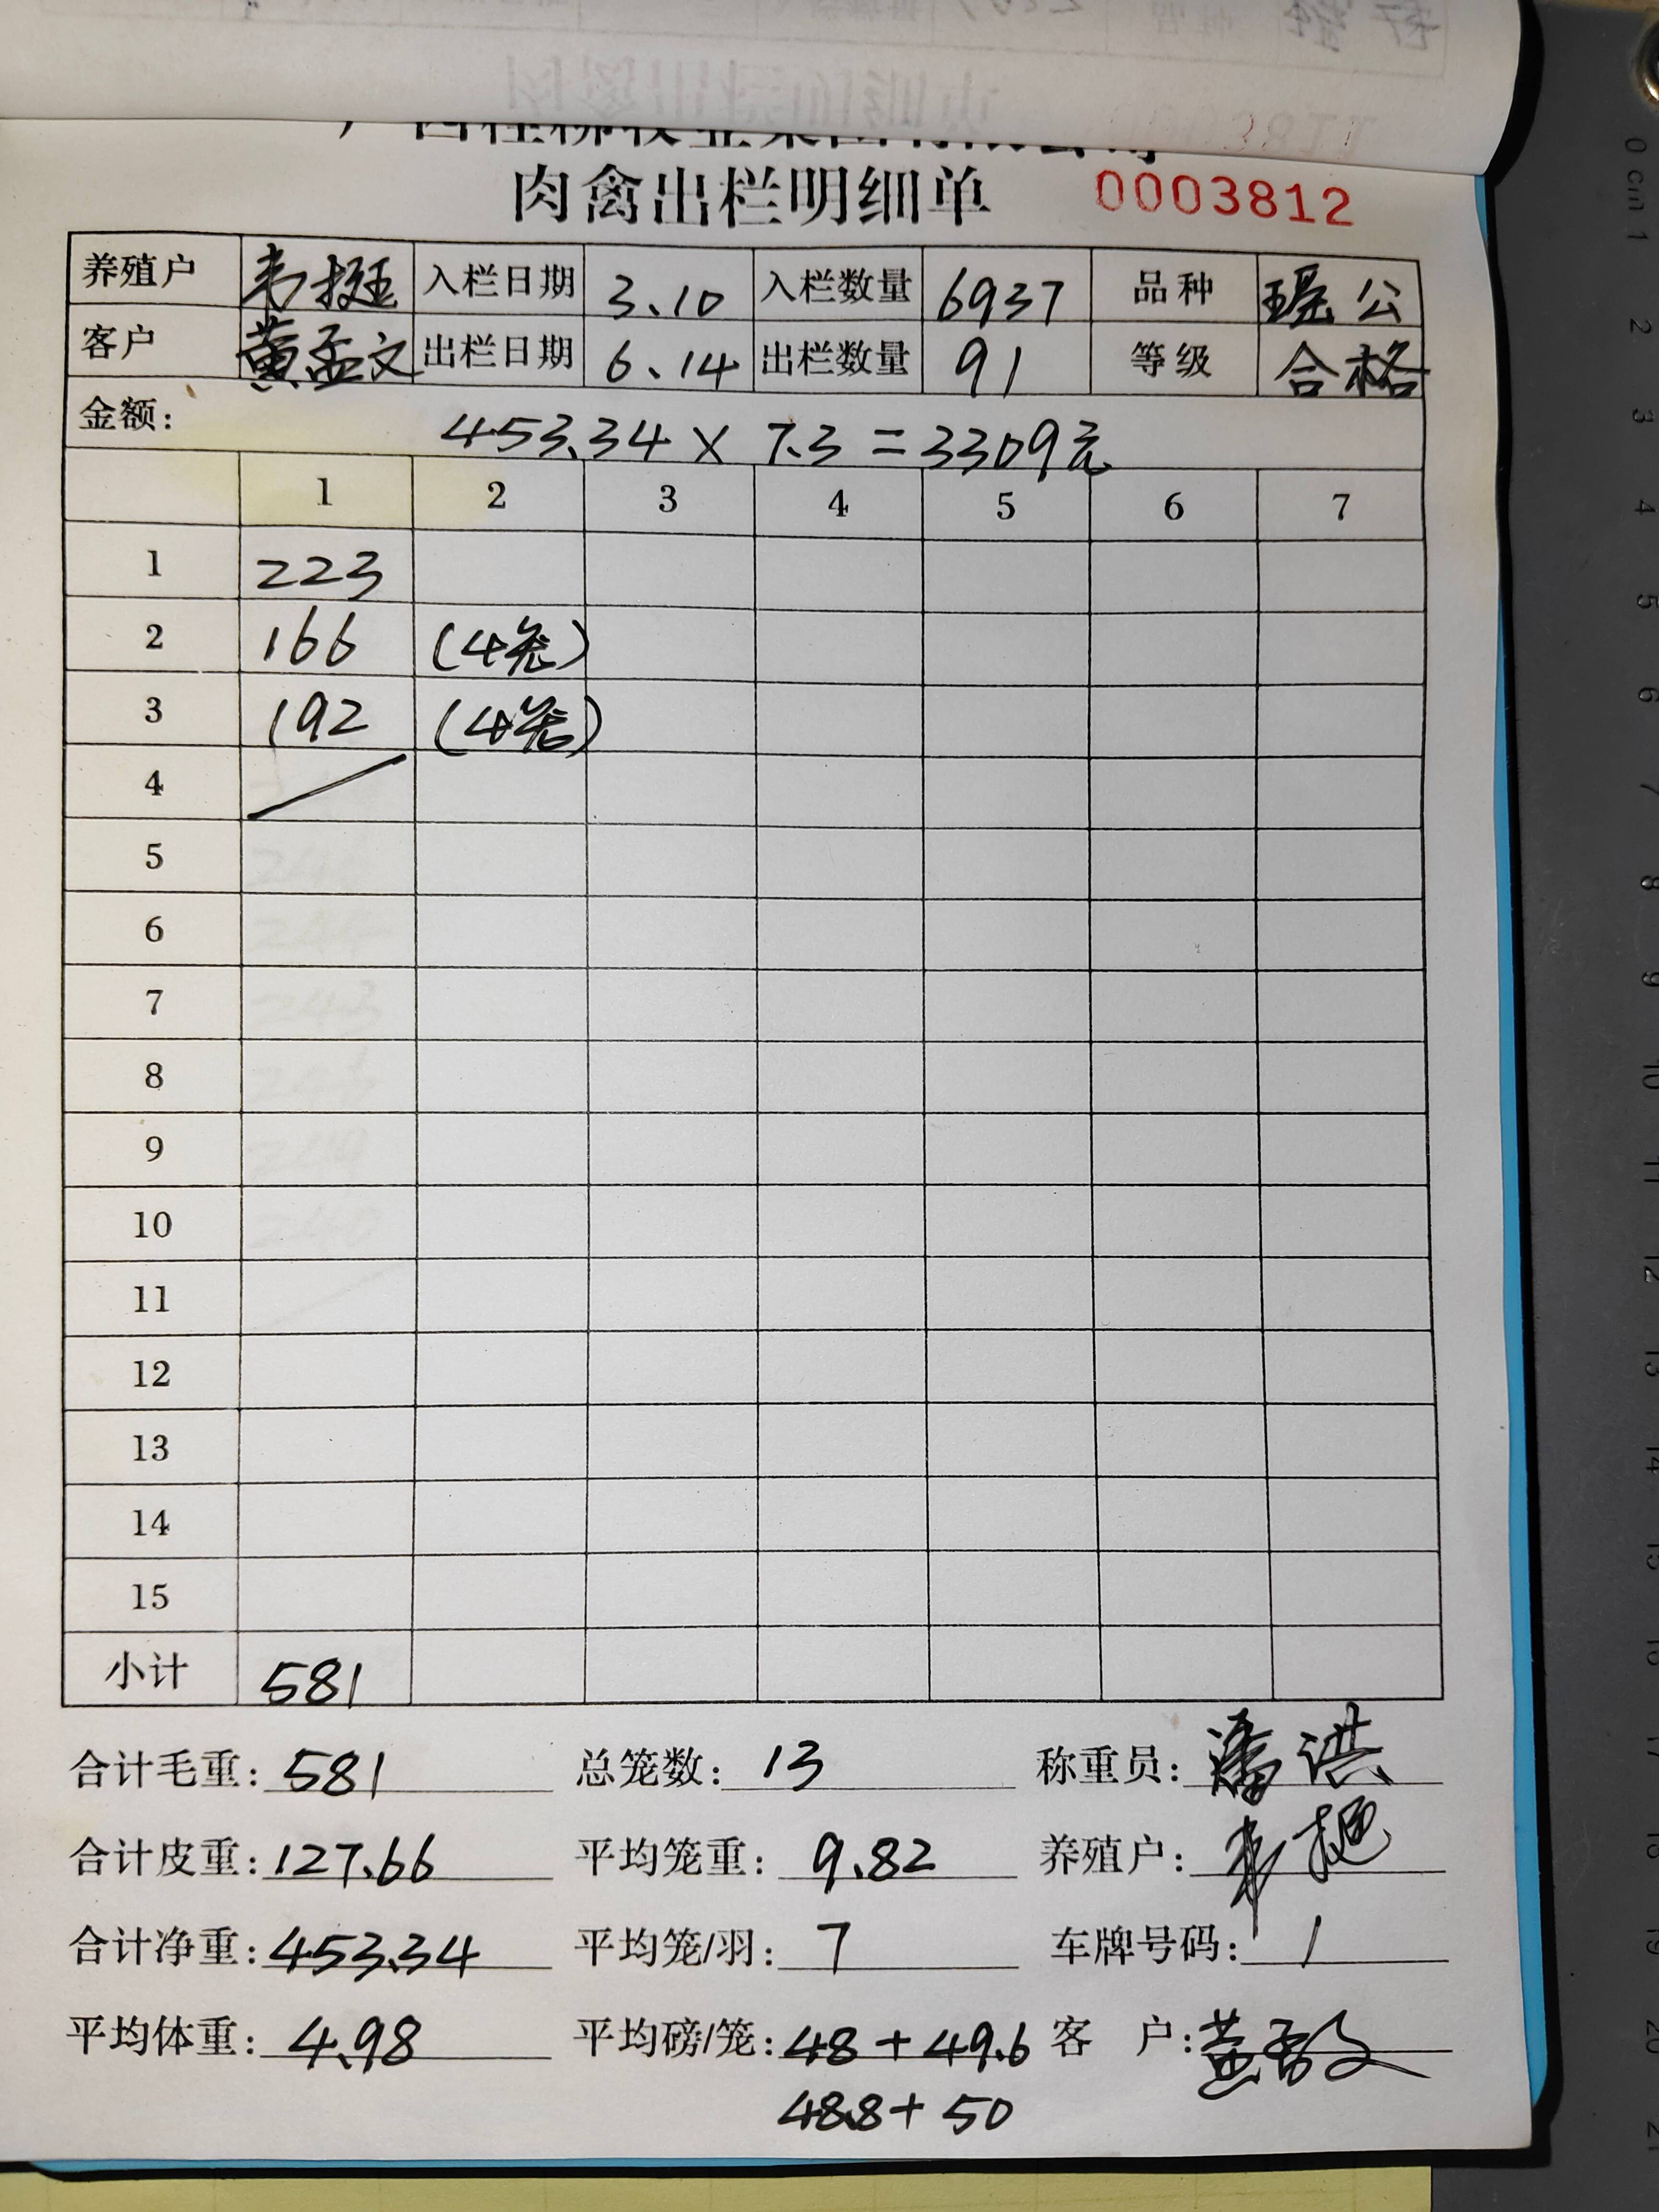 肉禽出栏明细单 0003812
养殖户 韦挺 入栏日期 3.10 入栏数量 6937 品种 瑶公
客户 黄孟文 出栏日期 6.14 出栏数量 91 等级 合格
金额: 453.34 × 7.3 = 3309元
1 2 3 4 5 6 7
1 223
2 166 (4笼)
3 192 (4笼)
4
5
6
7
8
9
10
11
12
13
14
15
小计 581
合计毛重: 581 总笼数: 13 称重员: 潘洪
合计皮重: 127.66 平均笼重: 9.82 养殖户: 韦挺
合计净重: 453.34 平均笼/羽: 7 车牌号码: /
平均体重: 4.98 平均磅/笼: 48 + 49.6 客 户: 黄孟文
48.8 + 50